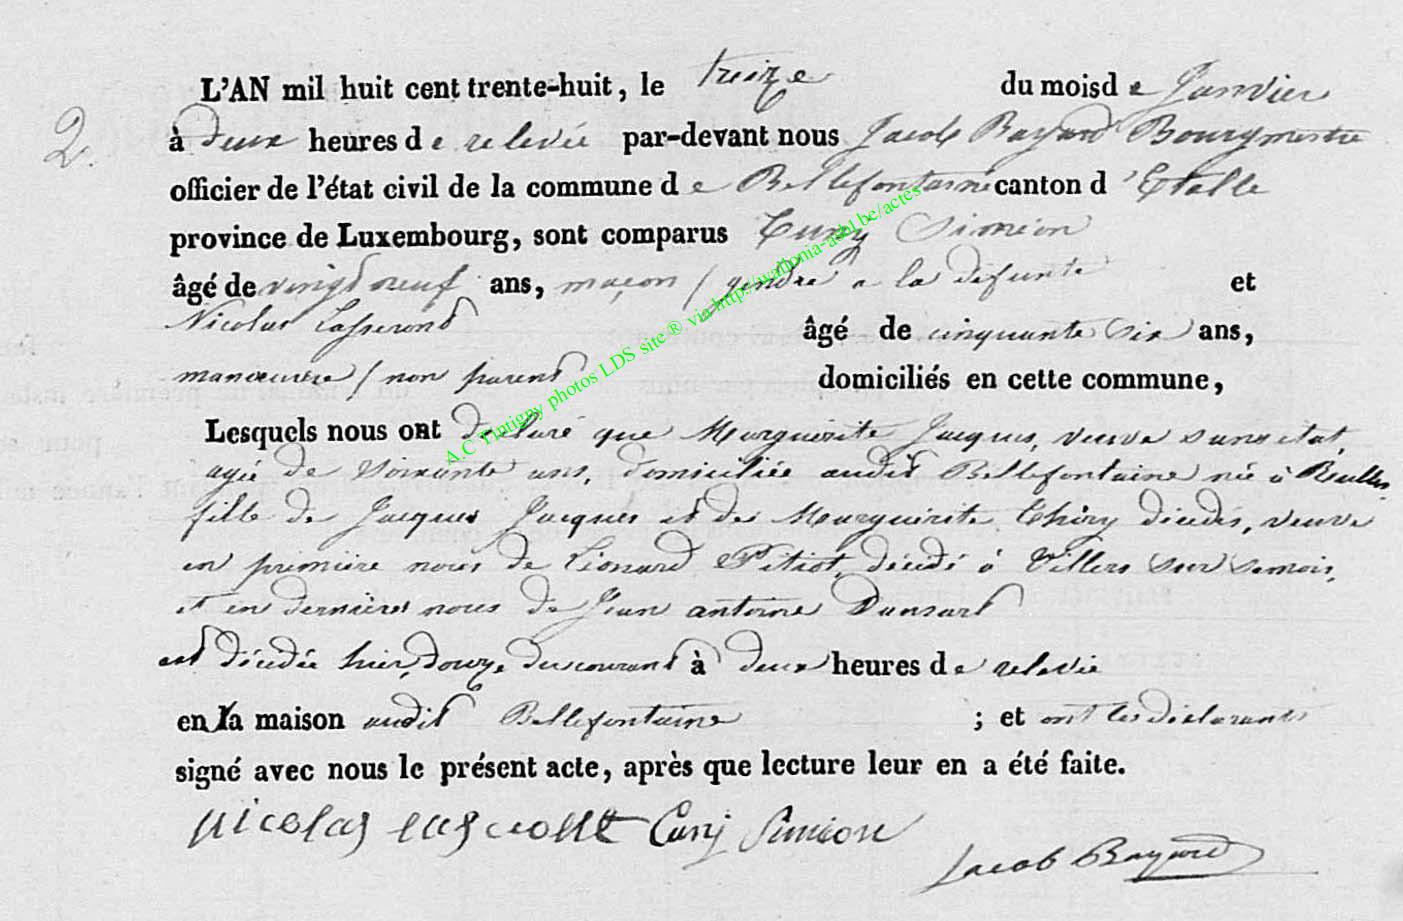 L'AN mil huit cent trente-huit, le treize du mois de Janvier
2.
à deux heures de relevée par-devant nous Jacob Bayard Bourgmestre
officier de l'état civil de la commune de Bellefontaine canton d'Etalle
province de Luxembourg, sont comparus Cunÿ Siméon
âgé de vingt neuf ans, maçon / gendre a la défunte et
Nicolas âgé de cinquante six ans,
manœuvre / non parent domiciliés en cette commune,
Lesquels nous ont déclaré que Marguerite Jacques, veuve sans etat,
agée de soixante ans, domiciliée audit Bellefontaine née à Rulles
fille de Jacques Jacques et de Marguerite Thiry décédés, veuve
en première noces de Léonard Pitiot, décédé à Villers sur semois,
et en dernières noces de Jean antoine Dansart
est décédée hier, douze du courant à deux heures de relevée
en la maison audit Bellefontaine ; et ont les déclarants
signé avec nous le présent acte, après que lecture leur en a été faite.
nicolas Cunÿ Simion
Jacob Bayard
A.C Tintigny photos LDS site ® via http://wallonia-asbl.be/actes